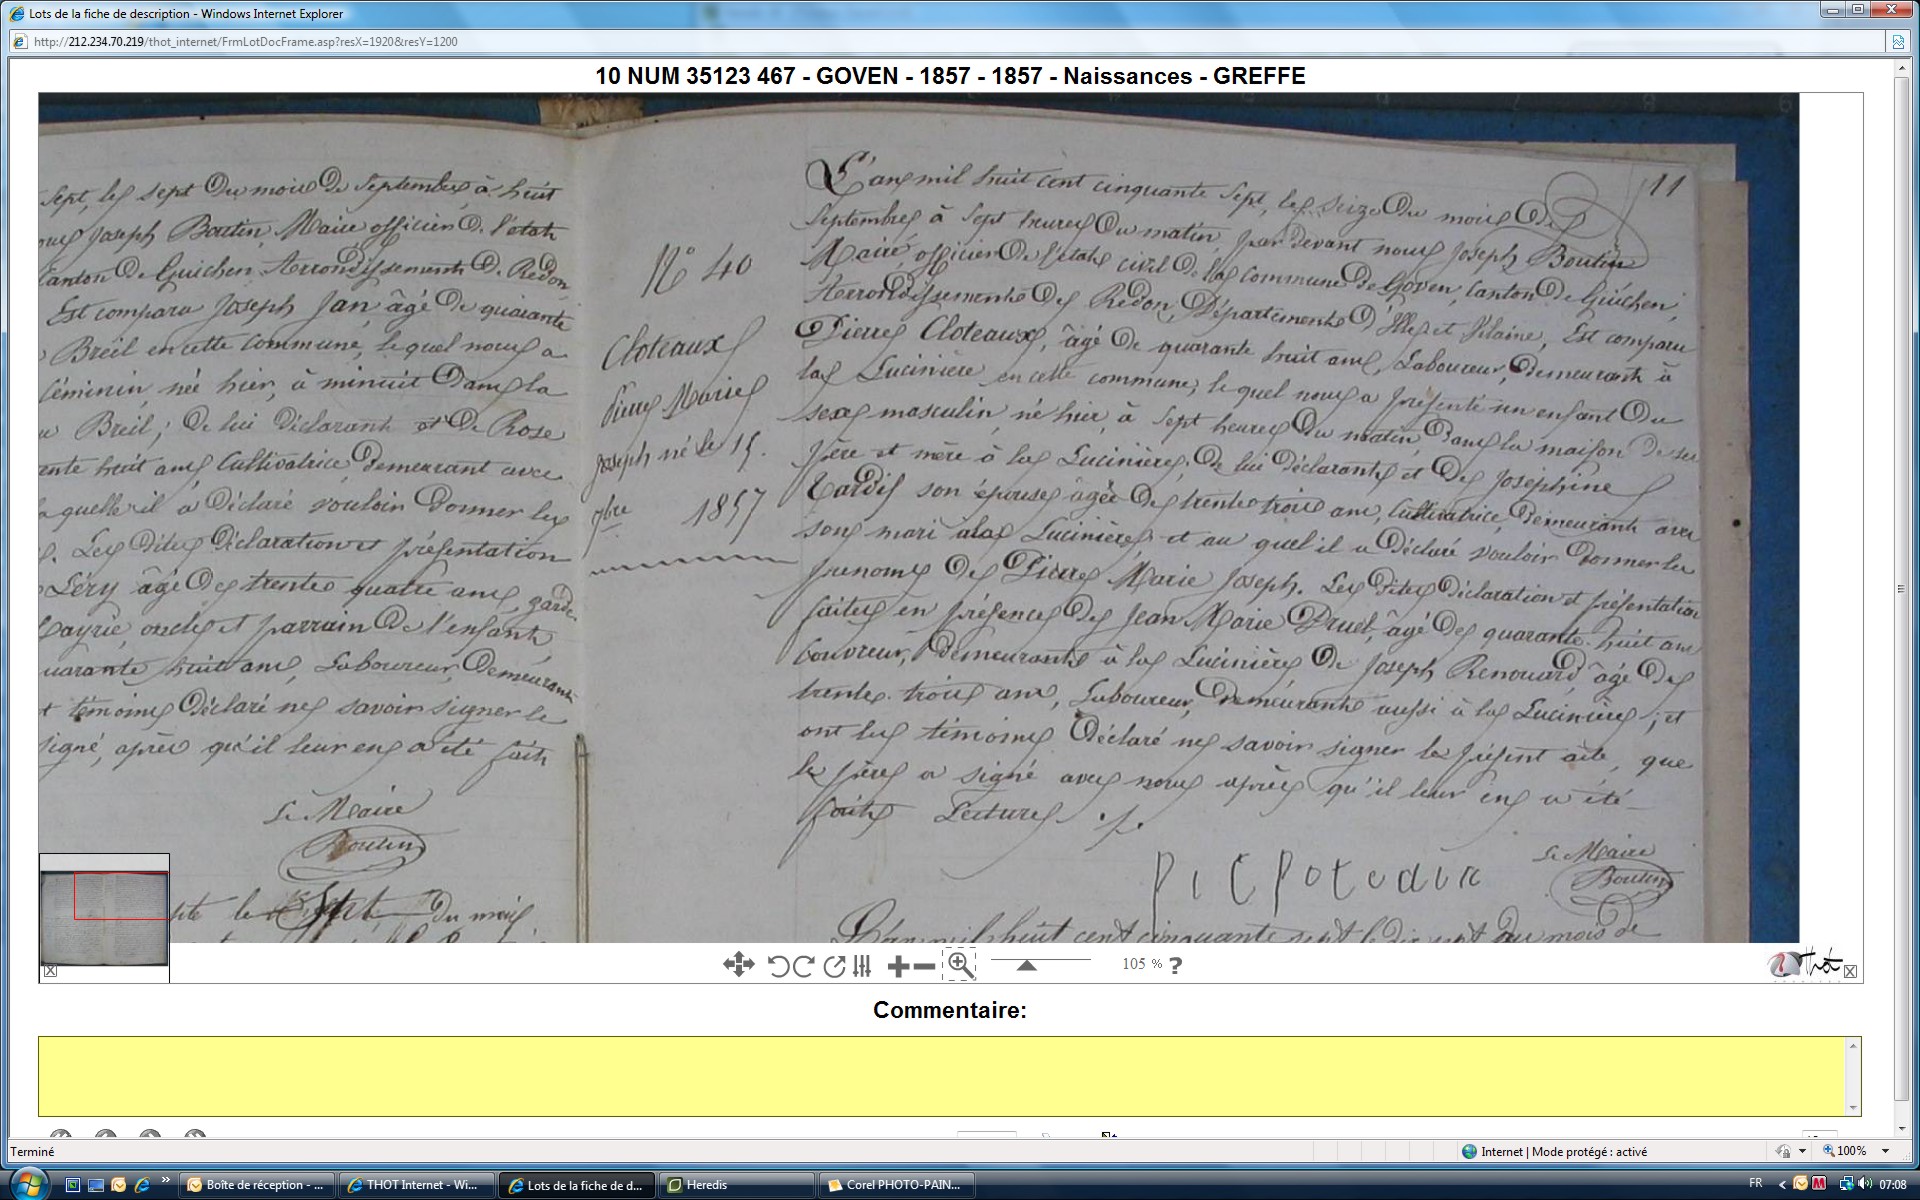 Lots de la fiche de description - Windows Internet Explorer
http://212.234.70.219/thot_internet/FrmLotDocFrame.asp?resX=1920&resY=1200
10 NUM 35123 467 - GOVEN - 1857 - 1857 - Naissances - GREFFE
sept, le sept du mois de Septembre, à huit
nous Joseph Boutin, Maire officier de l'état
Canton de Guichen Arrondissement de Redon,
Est comparu Joseph Jan, âgé de quarante
Breil en cette commune, lequel nous a
féminin, née hier, à minuit dans la
Breil; de lui déclarant et de Rose
huit ans, Cultivatrice, demeurant avec
laquelle il a déclaré vouloir donner les
Les dites déclaration et présentation
Léry âgé de trente quatre ans, garde
oncle et parrain de l'enfant,
quarante huit ans, Laboureur, demeurant
témoins déclaré ne savoir signer le
signé, après qu'il leur en a été fait
Le Maire
Boutin
le Sept du mois
N° 40
Cloteaux
Pierre Marie
Joseph né le 15.
7bre 1857
11
L'an mil huit cent cinquante sept, le seize du mois de
Septembre à sept heures du matin, par devant nous Joseph Boutin
Maire officier de l'état civil de la commune de Goven, Canton de Guichen,
Arrondissement de Redon, Département d'Ille et Vilaine, Est comparu
Pierre Cloteaux, âgé de quarante huit ans, Laboureur, demeurant à
la Lucinière en cette commune, lequel nous a présenté un enfant du
sexe masculin, né hier, à sept heures du matin, dans la maison de ses
père et mère à la Lucinière, de lui déclarant et de Joséphine
Tardif son épouse âgée de trente trois ans, Cultivatrice, demeurant avec
son mari à la Lucinière et au quel il a déclaré vouloir donner les
prenoms de Pierre Marie Joseph. Les dites déclaration et présentation
faites en présence de Jean Marie Druel, âgé de quarante huit ans
couvreur, demeurant à la Lucinière de Joseph Renouard âgé de
trente trois ans, Laboureur, demeurant aussi à la Lucinière; et
ont les témoins déclaré ne savoir signer le présent acte, que
le père a signé avec nous après qu'il leur en a été
fait Lecture
Le Maire
Boutin
L'an mil huit cent cinquante sept le dix sept du mois de
105 % ?
Thot
Commentaire:
Terminé
Internet | Mode protégé : activé
100%
Boîte de réception - ...
THOT Internet - Wi...
Lots de la fiche de d...
Heredis
Corel PHOTO-PAIN...
FR
07:08